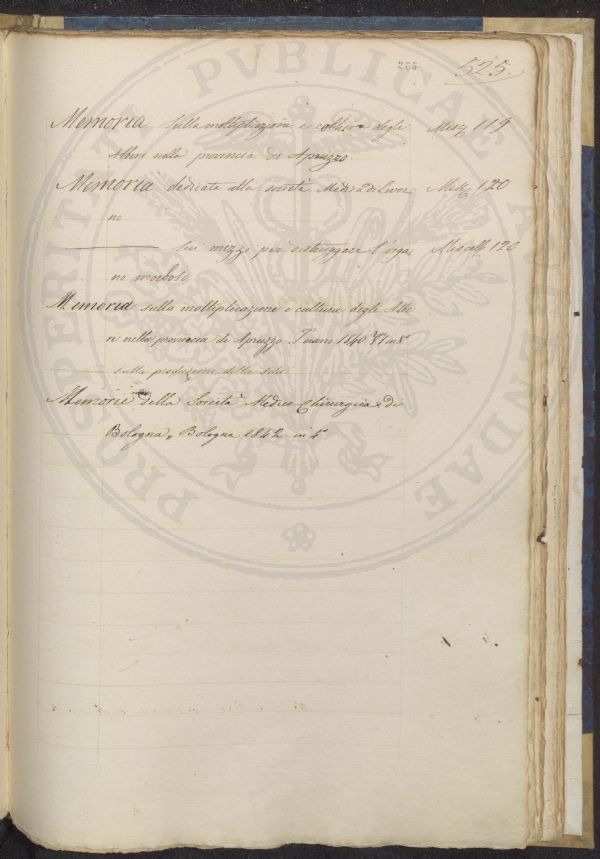 265 525.
Memoria sulla moltiplicazione e coltura degli Misc 119
Alberi nella provincia di Apruzzo.
Memoria dedicata alla società Medica di Livor Misc 120
no
——— sui mezzi per distruggere l'orga Miscell 120
no morboso
Memoria sulla moltiplicazione e cultura degli Albe
ri nella provincia di Apruzzo. Teramo 1840 in 8°
——— sulla produzione della seta
Memorie della Società Medico-Chirurgica di
Bologna„ Bologna 1842 in 4°
PROSPERITATI PUBLICAE AUGENDAE